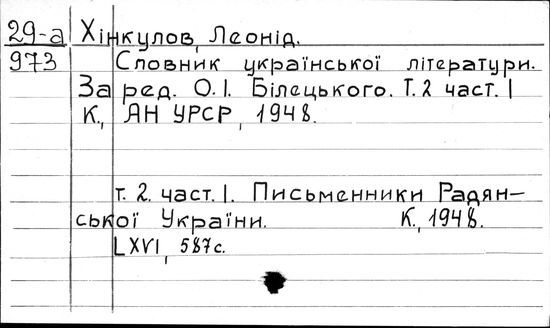 29-а Хінкулов, Леонід.
973 Словник української літератури.
За ред. О.І. Білецького. Т.2 част.І
К., АН УРСР, 1948.
т. 2. част.І. Письменники Радян-
ської України. К., 1948.
LXVI, 587с.